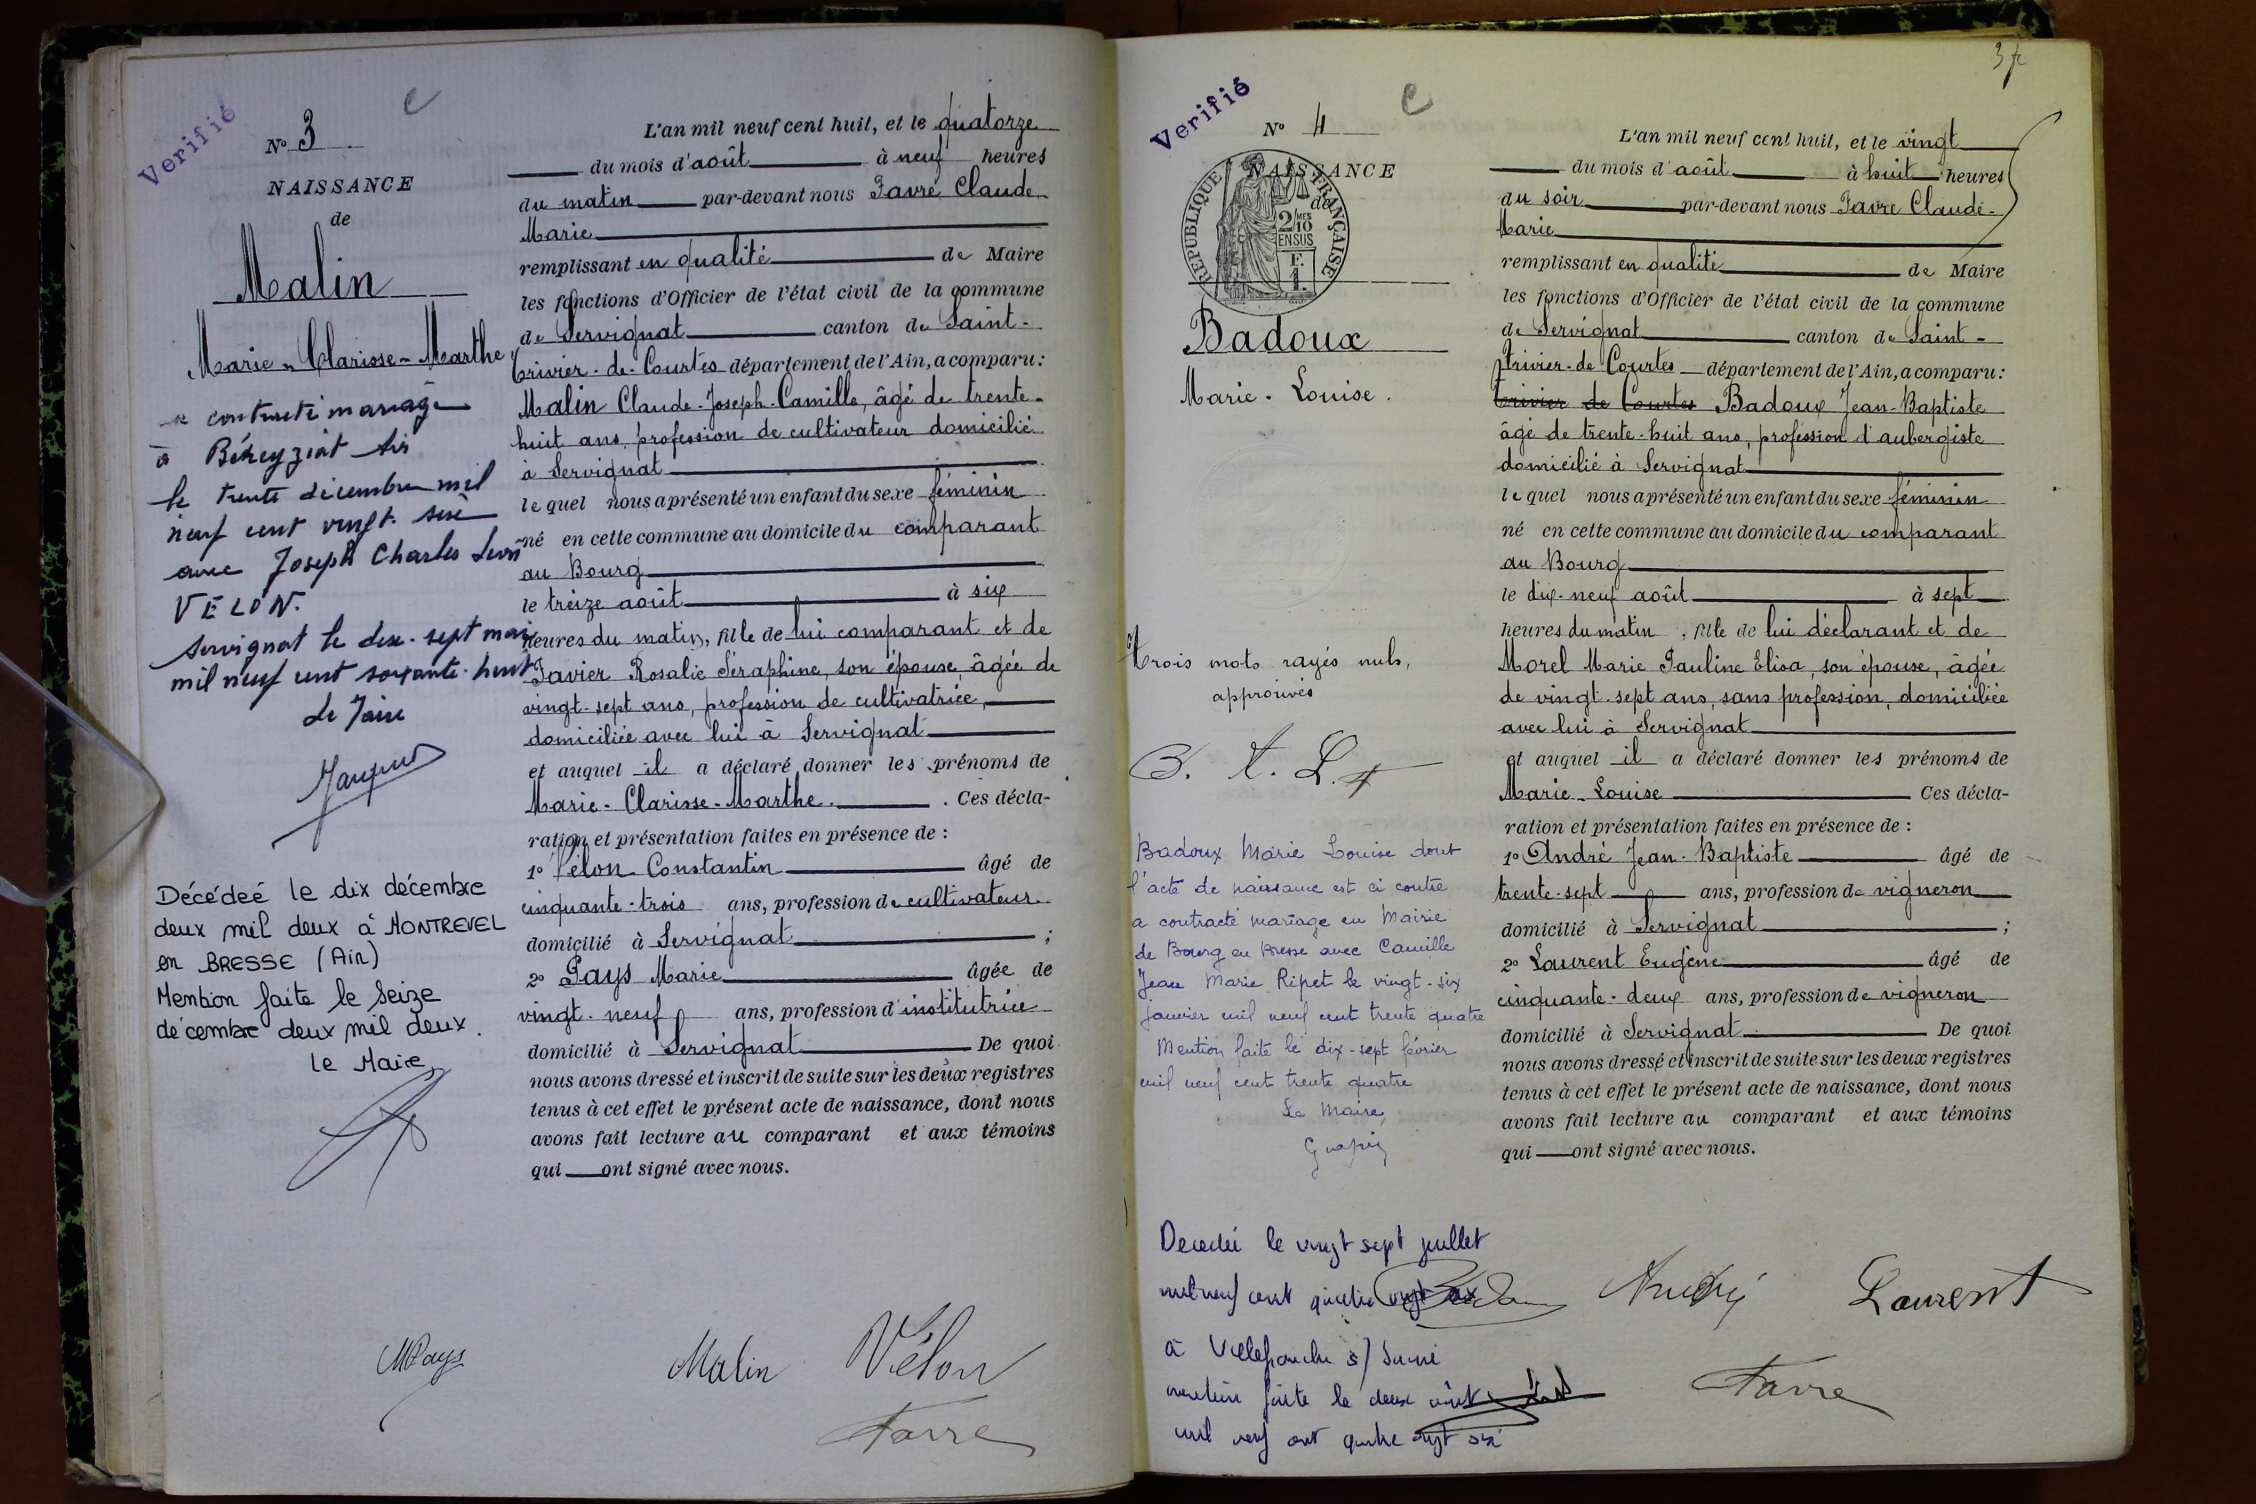 Verifié
C
Nº 3
NAISSANCE
de
Malin
Marie-Clarisse-Marthe
a contracté mariage
à Béreyziat Ain
le trente décembre mil
neuf cent vingt-six
avec Joseph Charles
VELON.
Servignat le dix-sept mai
mil neuf cent soixante-huit
Le Maire
Décédeé le dix décembre
deux mil deux à MONTREVEL
en BRESSE (Ain)
Mention faite le seize
décembre deux mil deux.
le Maire,
L'an mil neuf cent huit, et le quatorze
du mois d'août à neuf heures
du matin par-devant nous Favre Claude
Marie
remplissant en qualité de Maire
les fonctions d'Officier de l'état civil de la commune
de Servignat canton de Saint-
Trivier-de-Courtes département de l'Ain, a comparu:
Malin Claude-Joseph-Camille, âgé de trente-
huit ans, profession de cultivateur domicilié
à Servignat
le quel nous a présenté un enfant du sexe féminin
né en cette commune au domicile du comparant
au Bourg
le treize août à six
heures du matin, fille de lui comparant et de
Favier Rosalie Séraphine, son épouse, âgée de
vingt-sept ans, profession de cultivatrice,
domiciliée avec lui à Servignat
et auquel il a déclaré donner les prénoms de
Marie-Clarisse-Marthe. . Ces décla-
ration et présentation faites en présence de :
1º Vélon Constantin âgé de
cinquante-trois ans, profession de cultivateur
domicilié à Servignat ;
2º Pays Marie âgée de
vingt-neuf ans, profession d'institutrice
domicilié à Servignat De quoi
nous avons dressé et inscrit de suite sur les deux registres
tenus à cet effet le présent acte de naissance, dont nous
avons fait lecture au comparant et aux témoins
qui ont signé avec nous.
MPays Malin Vélon
Favre
Verifié
C
Nº 4
NAISSANCE
de
REPUBLIQUE FRANÇAISE
2/10 MES
EN SUS
F.
1.
Badoux
Marie-Louise.
Trois mots rayés nuls,
approuvés
B. A. L. F
Badoux Marie Louise dont
l'acte de naissance est ci contre
a contracté mariage en Mairie
de Bourg en Bresse avec Camille
Jean Marie Ripet le vingt-six
janvier mil neuf cent trente quatre
Mention faite le dix-sept février
mil neuf cent trente quatre
Le Maire,
Decedée le vingt sept juillet
mil neuf cent quatre vingt six
à Villefranche s/ Saône
mention faite le deux août
mil neuf cent quatre vingt six
L'an mil neuf cent huit, et le vingt
du mois d'août à huit heures
du soir par-devant nous Favre Claude-
Marie
remplissant en qualité de Maire
les fonctions d'Officier de l'état civil de la commune
de Servignat canton de Saint-
Trivier-de-Courtes département de l'Ain, a comparu:
Trivier de Courtes Badoux Jean-Baptiste
âgé de trente-huit ans, profession d'aubergiste
domicilié à Servignat
le quel nous a présenté un enfant du sexe féminin
né en cette commune au domicile du comparant
au Bourg
le dix-neuf août à sept
heures du matin, fille de lui déclarant et de
Morel Marie Pauline Elisa, son épouse, âgée
de vingt-sept ans, sans profession, domiciliée
avec lui à Servignat
et auquel il a déclaré donner les prénoms de
Marie-Louise Ces décla-
ration et présentation faites en présence de :
1º André Jean-Baptiste âgé de
trente-sept ans, profession de vigneron
domicilié à Servignat ;
2º Laurent Eugène âgé de
cinquante-deux ans, profession de vigneron
domicilié à Servignat De quoi
nous avons dressé et inscrit de suite sur les deux registres
tenus à cet effet le présent acte de naissance, dont nous
avons fait lecture au comparant et aux témoins
qui ont signé avec nous.
Badoux André Laurent
Favre